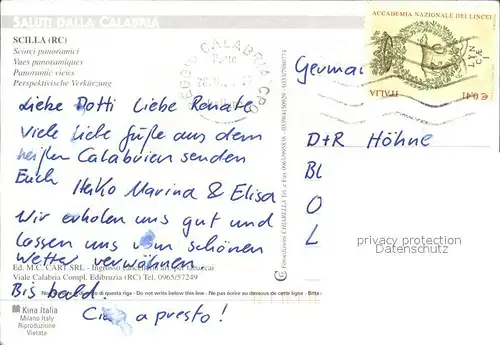 SALUTI DALLA CALABRIA
SCILLA (RC)
Scorci panoramici
Vues panoramiques
Panoramic views
Perspektivische Verkürzung
Liebe Dotti Liebe Renate
Viele liebe Grüße aus dem
heißen Calabrien senden
Euch Heiko Marina & Elisa
Wir erholen uns gut und
lassen uns vom schönen
Wetter verwöhnen.
Bis bald.
Ciao a presto!
Ed. M.C. CART SRL - Ingrosso
Viale Calabria Compl. Edibruzia (RC) Tel. 0965/57249
di questa riga - Do not write below this line - Ne pas écrire au dessous de cette ligne - Bitte
Kina Italia
Milano Italy
Riproduzione
Vietata
REGGIO CALABRIA CPO
ACCADEMIA NAZIONALE DEI LINCEI
LYN
CÆ
I
ITALIA
€ 0,41
German
D+R Höhne
BL
O
L
privacy protection
Datenschutz